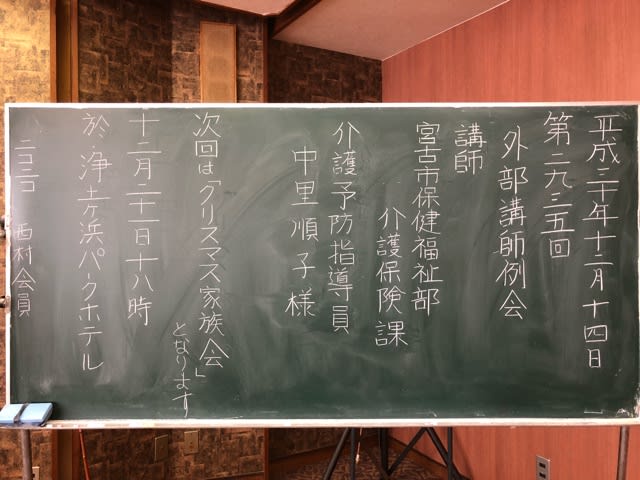 平成三十年十二月十四日
第二九三五回
外部講師例会
講師
宮古市保健福祉部
介護保険課
介護予防指導員
中里順子様
次回は「クリスマス家族会」
となります
十二月二十一日十八時
於.浄土ヶ浜パークホテル
ニコニコ 西村会員